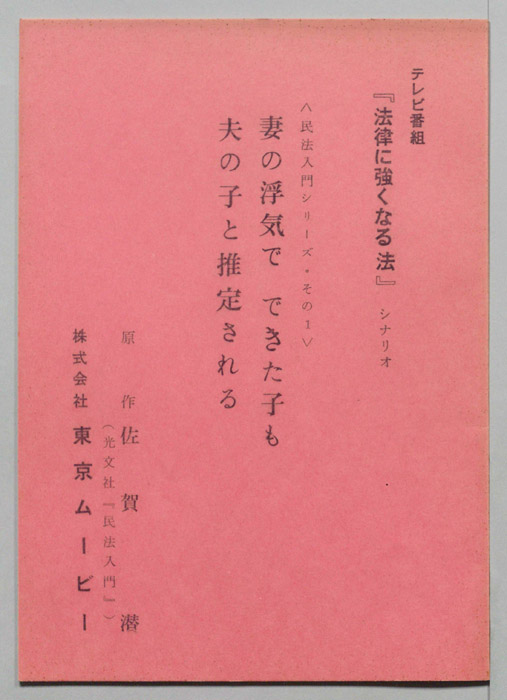 テレビ番組
『法律に強くなる法』 シナリオ
〈民法入門シリーズ・その1〉
妻の浮気で できた子も
夫の子と推定される
原 作 佐 賀 潜
(光文社『民法入門』)
株式会社 東京ムービー